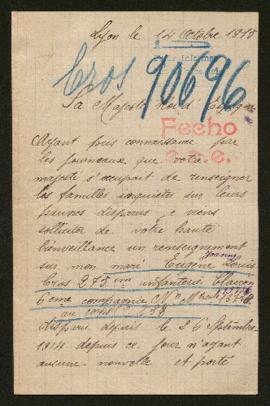 Lyon le 14 Octobre 1915
Cros 90696
Sa Majesté le roi d'Espagne
Fecho
Ayant pris connaissance par
les journaux que votre
majesté s'occupait de renseigner
les familles inquiètes sur leurs
pauvres disparus, je viens
solliciter de votre haute
bienveillance un renseignement
sur mon mari Eugène
Cros 275me infanterie
6ème compagnie
au corps
disparu depuis le 26 septembre
1914 depuis ce jour n'ayant
aucune nouvelle et porté